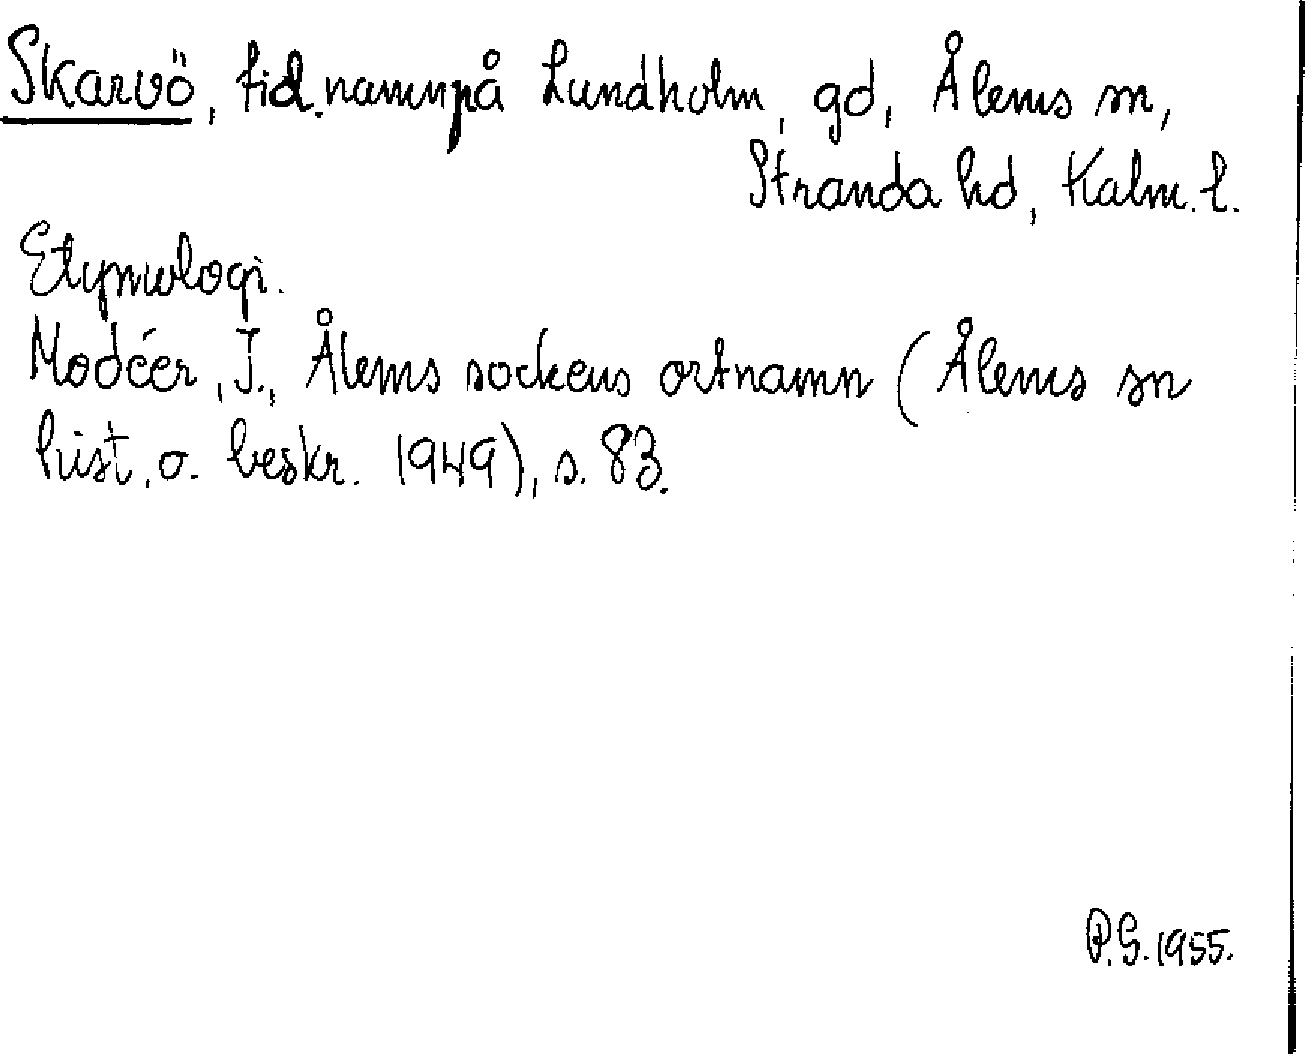 Skarvö, tid. namn på Lundholm, gd, Ålems sn,
Stranda hd, Kalm. l.
Etymologi.
Modéer, I., Ålems sockens ortnamn (Ålems sn
hist. o. beskr. 1949), s. 83.
P.G. 1955.